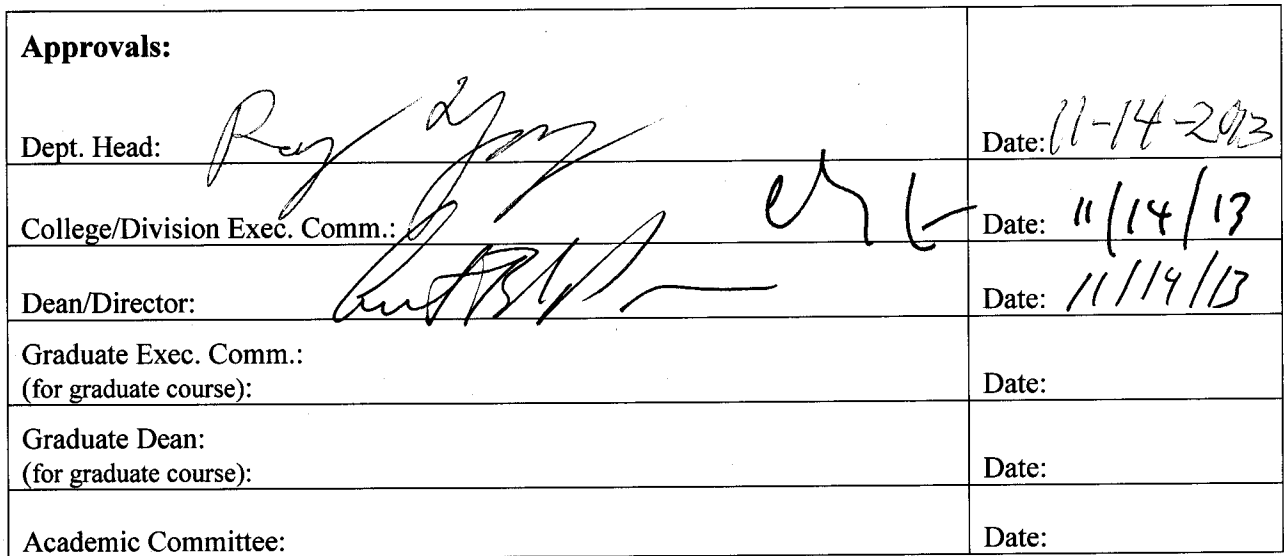 Approvals:
Dept. Head: Ray Date: 11-14-2013
College/Division Exec. Comm.: Date: 11/14/13
Dean/Director: Date: 11/14/13
Graduate Exec. Comm.:
(for graduate course): Date:
Graduate Dean:
(for graduate course): Date:
Academic Committee: Date: